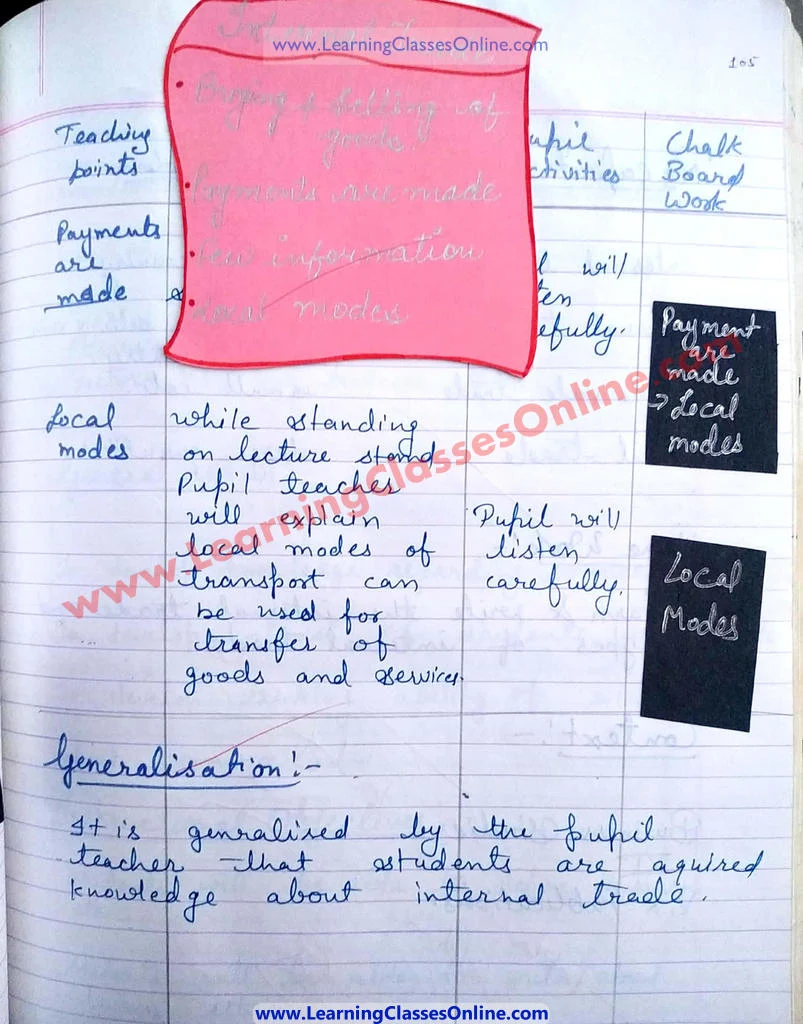 www.LearningClassesOnline.com
105
Internal Trade
• Buying & Selling of
goods.
• Payments are made
• Few information
• Local modes
Teaching
points
upil
ctivities
Chalk
Board
Work
Payments
are
made
l will
ten
efully.
Payment
are
made
→ Local
modes
Local
modes
while standing
on lecture stand
Pupil teacher
will explain
local modes of
transport can
be used for
transfer of
goods and services.
Pupil will
listen
carefully.
Local
Modes
www.LearningClassesOnline.com
Generalisation:-
It is genralised by the pupil
teacher that students are aquired
knowledge about internal trade.
www.LearningClassesOnline.com